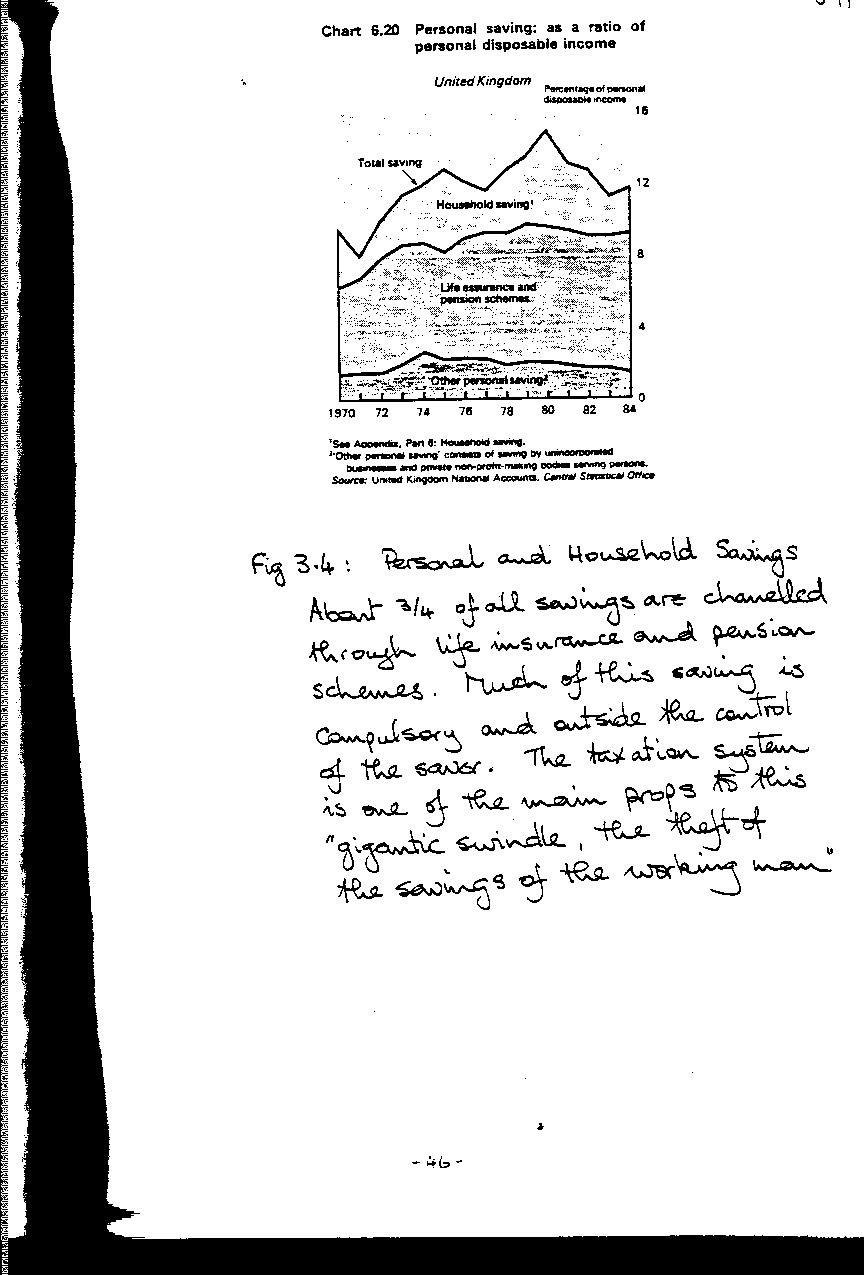 Chart 6.20 Personal saving: as a ratio of
personal disposable income
United Kingdom
Percentage of personal
disposable income
16
Total saving
12
Household saving¹
8
Life assurance and
pension schemes
4
Other personal saving²
0
1970 72 74 76 78 80 82 84
¹See Appendix, Part 6: Household saving.
²'Other personal saving' consists of saving by unincorporated
businesses and private non-profit-making bodies serving persons.
Source: United Kingdom National Accounts, Central Statistical Office
Fig 3.4: Personal and Household Savings
About 3/4 of all savings are chanelled
through life insurance and pension
schemes. Much of this saving is
compulsory and outside the control
of the saver. The taxation system
is one of the main props to this
"gigantic swindle, the theft of
the savings of the working man"
- 46 -